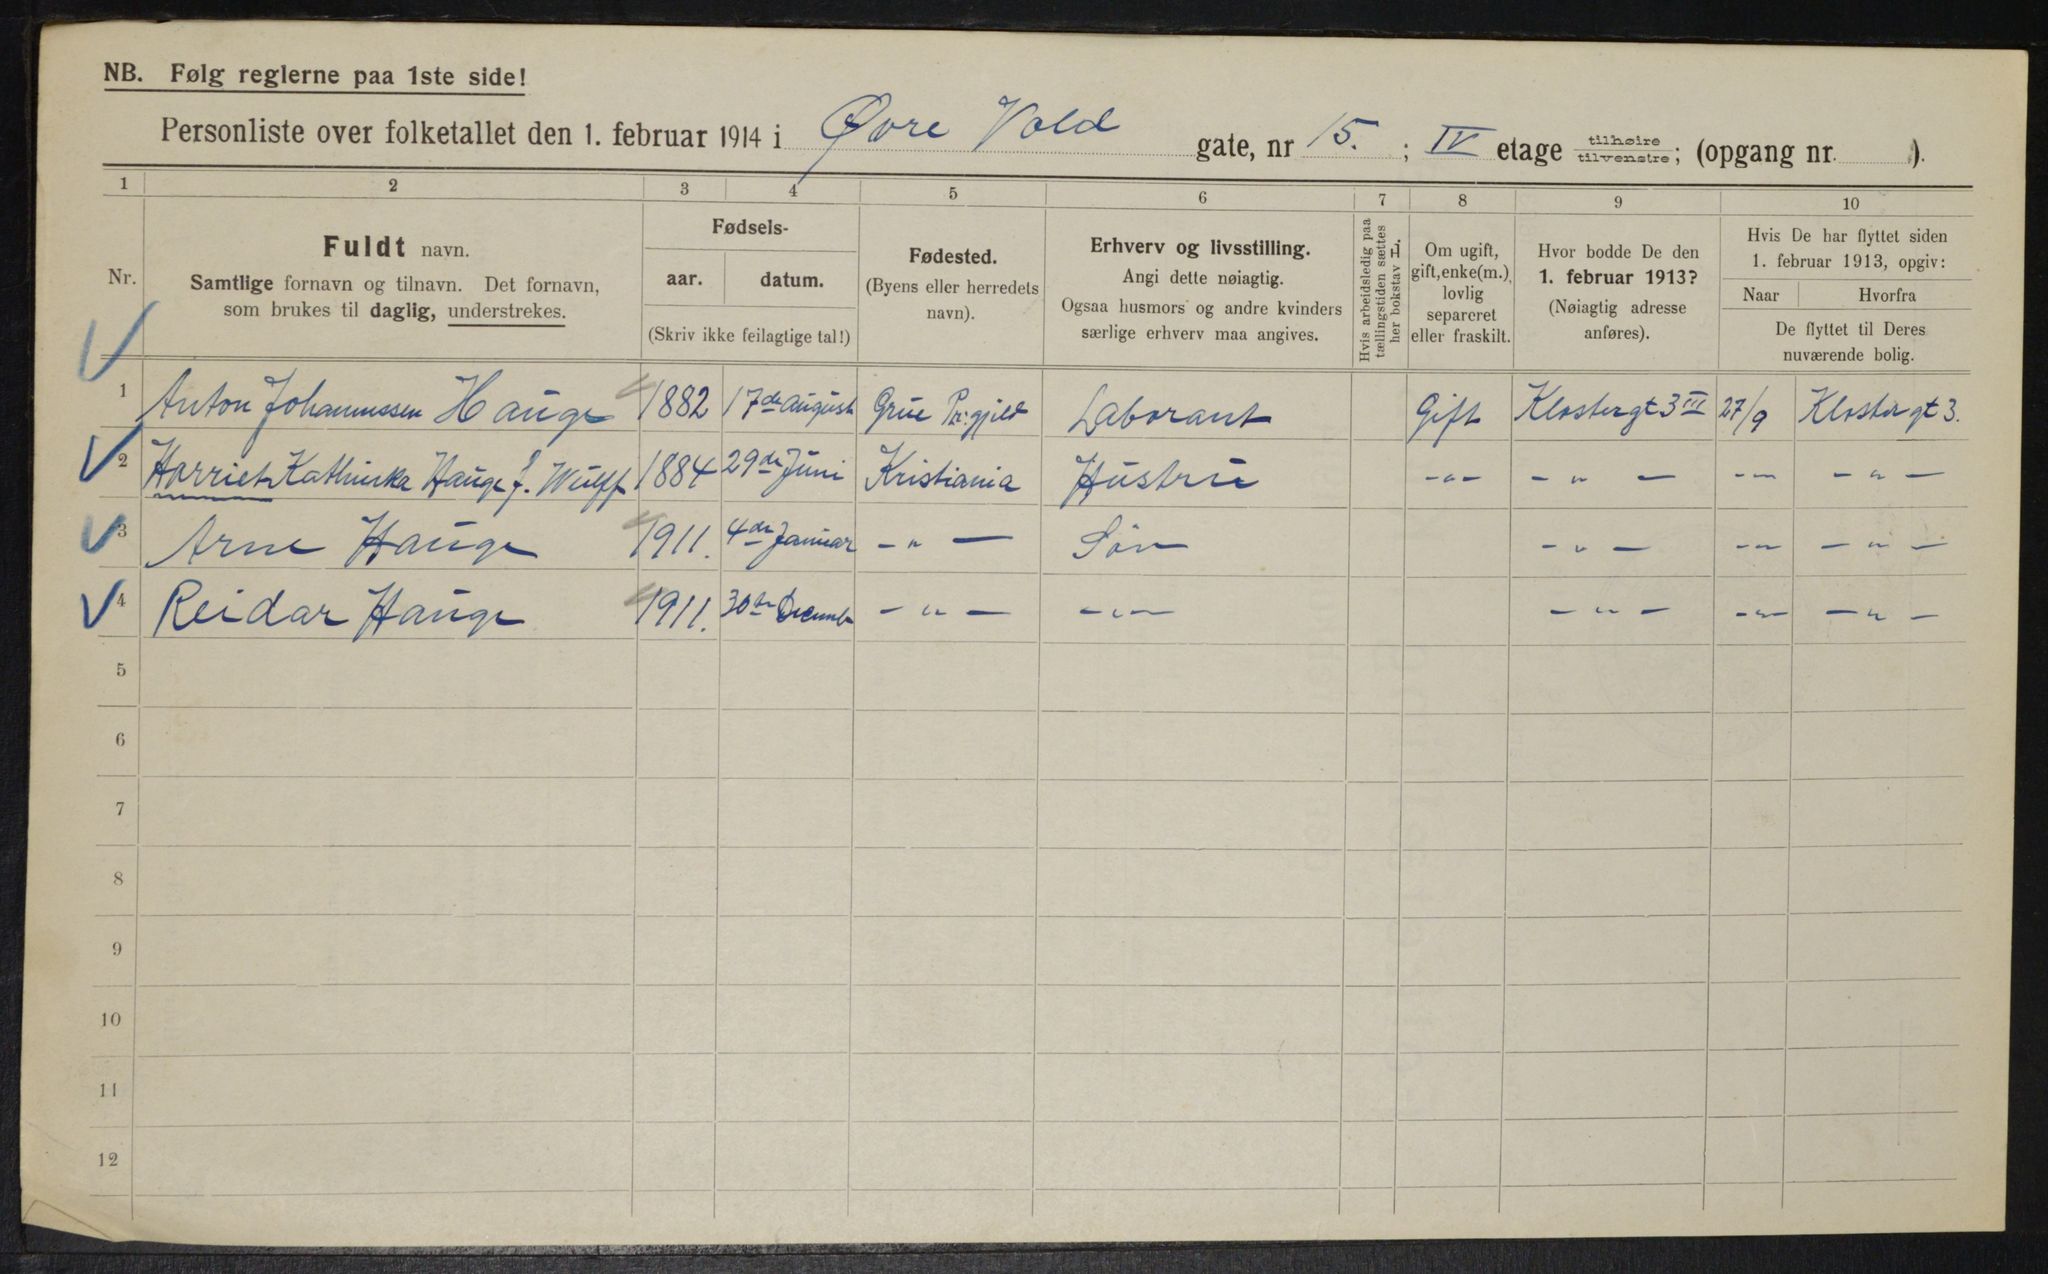 NB. Følg reglerne paa 1ste side!
Personliste over folketallet den 1. februar 1914 i Øvre Vold gate, nr 15. ; IV etage tilhøire tilvenstre; (opgang nr. ).
1 2 3 4 5 6 7 8 9 10
Nr.
Fuldt navn.
Samtlige fornavn og tilnavn. Det fornavn,
som brukes til daglig, understrekes.
Fødsels-
aar. datum.
(Skriv ikke feilagtige tal!)
Fødested.
(Byens eller herredets
navn).
Erhverv og livsstilling.
Angi dette nøiagtig.
Ogsaa husmors og andre kvinders
særlige erhverv maa angives.
Hvis arbeidsledig paa
tællingstiden sættes
her bokstav L.
Om ugift,
gift, enke(m.),
lovlig
separeret
eller fraskilt.
Hvor bodde De den
1. februar 1913?
(Nøiagtig adresse
anføres).
Hvis De har flyttet siden
1. februar 1913, opgiv:
Naar Hvorfra
De flyttet til Deres
nuværende bolig.
1 Anton Johannessen Hauge 1882 17de august Grue Pr:gjeld Laborant Gift Klostergt 3 III 27/9 Klostergt 3.
2 Harriet Kathinka Hauge f. Wulff 1884 29de Juni Kristiania Hustru -"- -"- -"- -"-
3 Arne Hauge 1911. 4de Januar -"- Søn -"- -"- -"-
4 Reidar Hauge 1911. 30te Decemb -"- -"- -"- -"- -"-
5
6
7
8
9
10
11
12